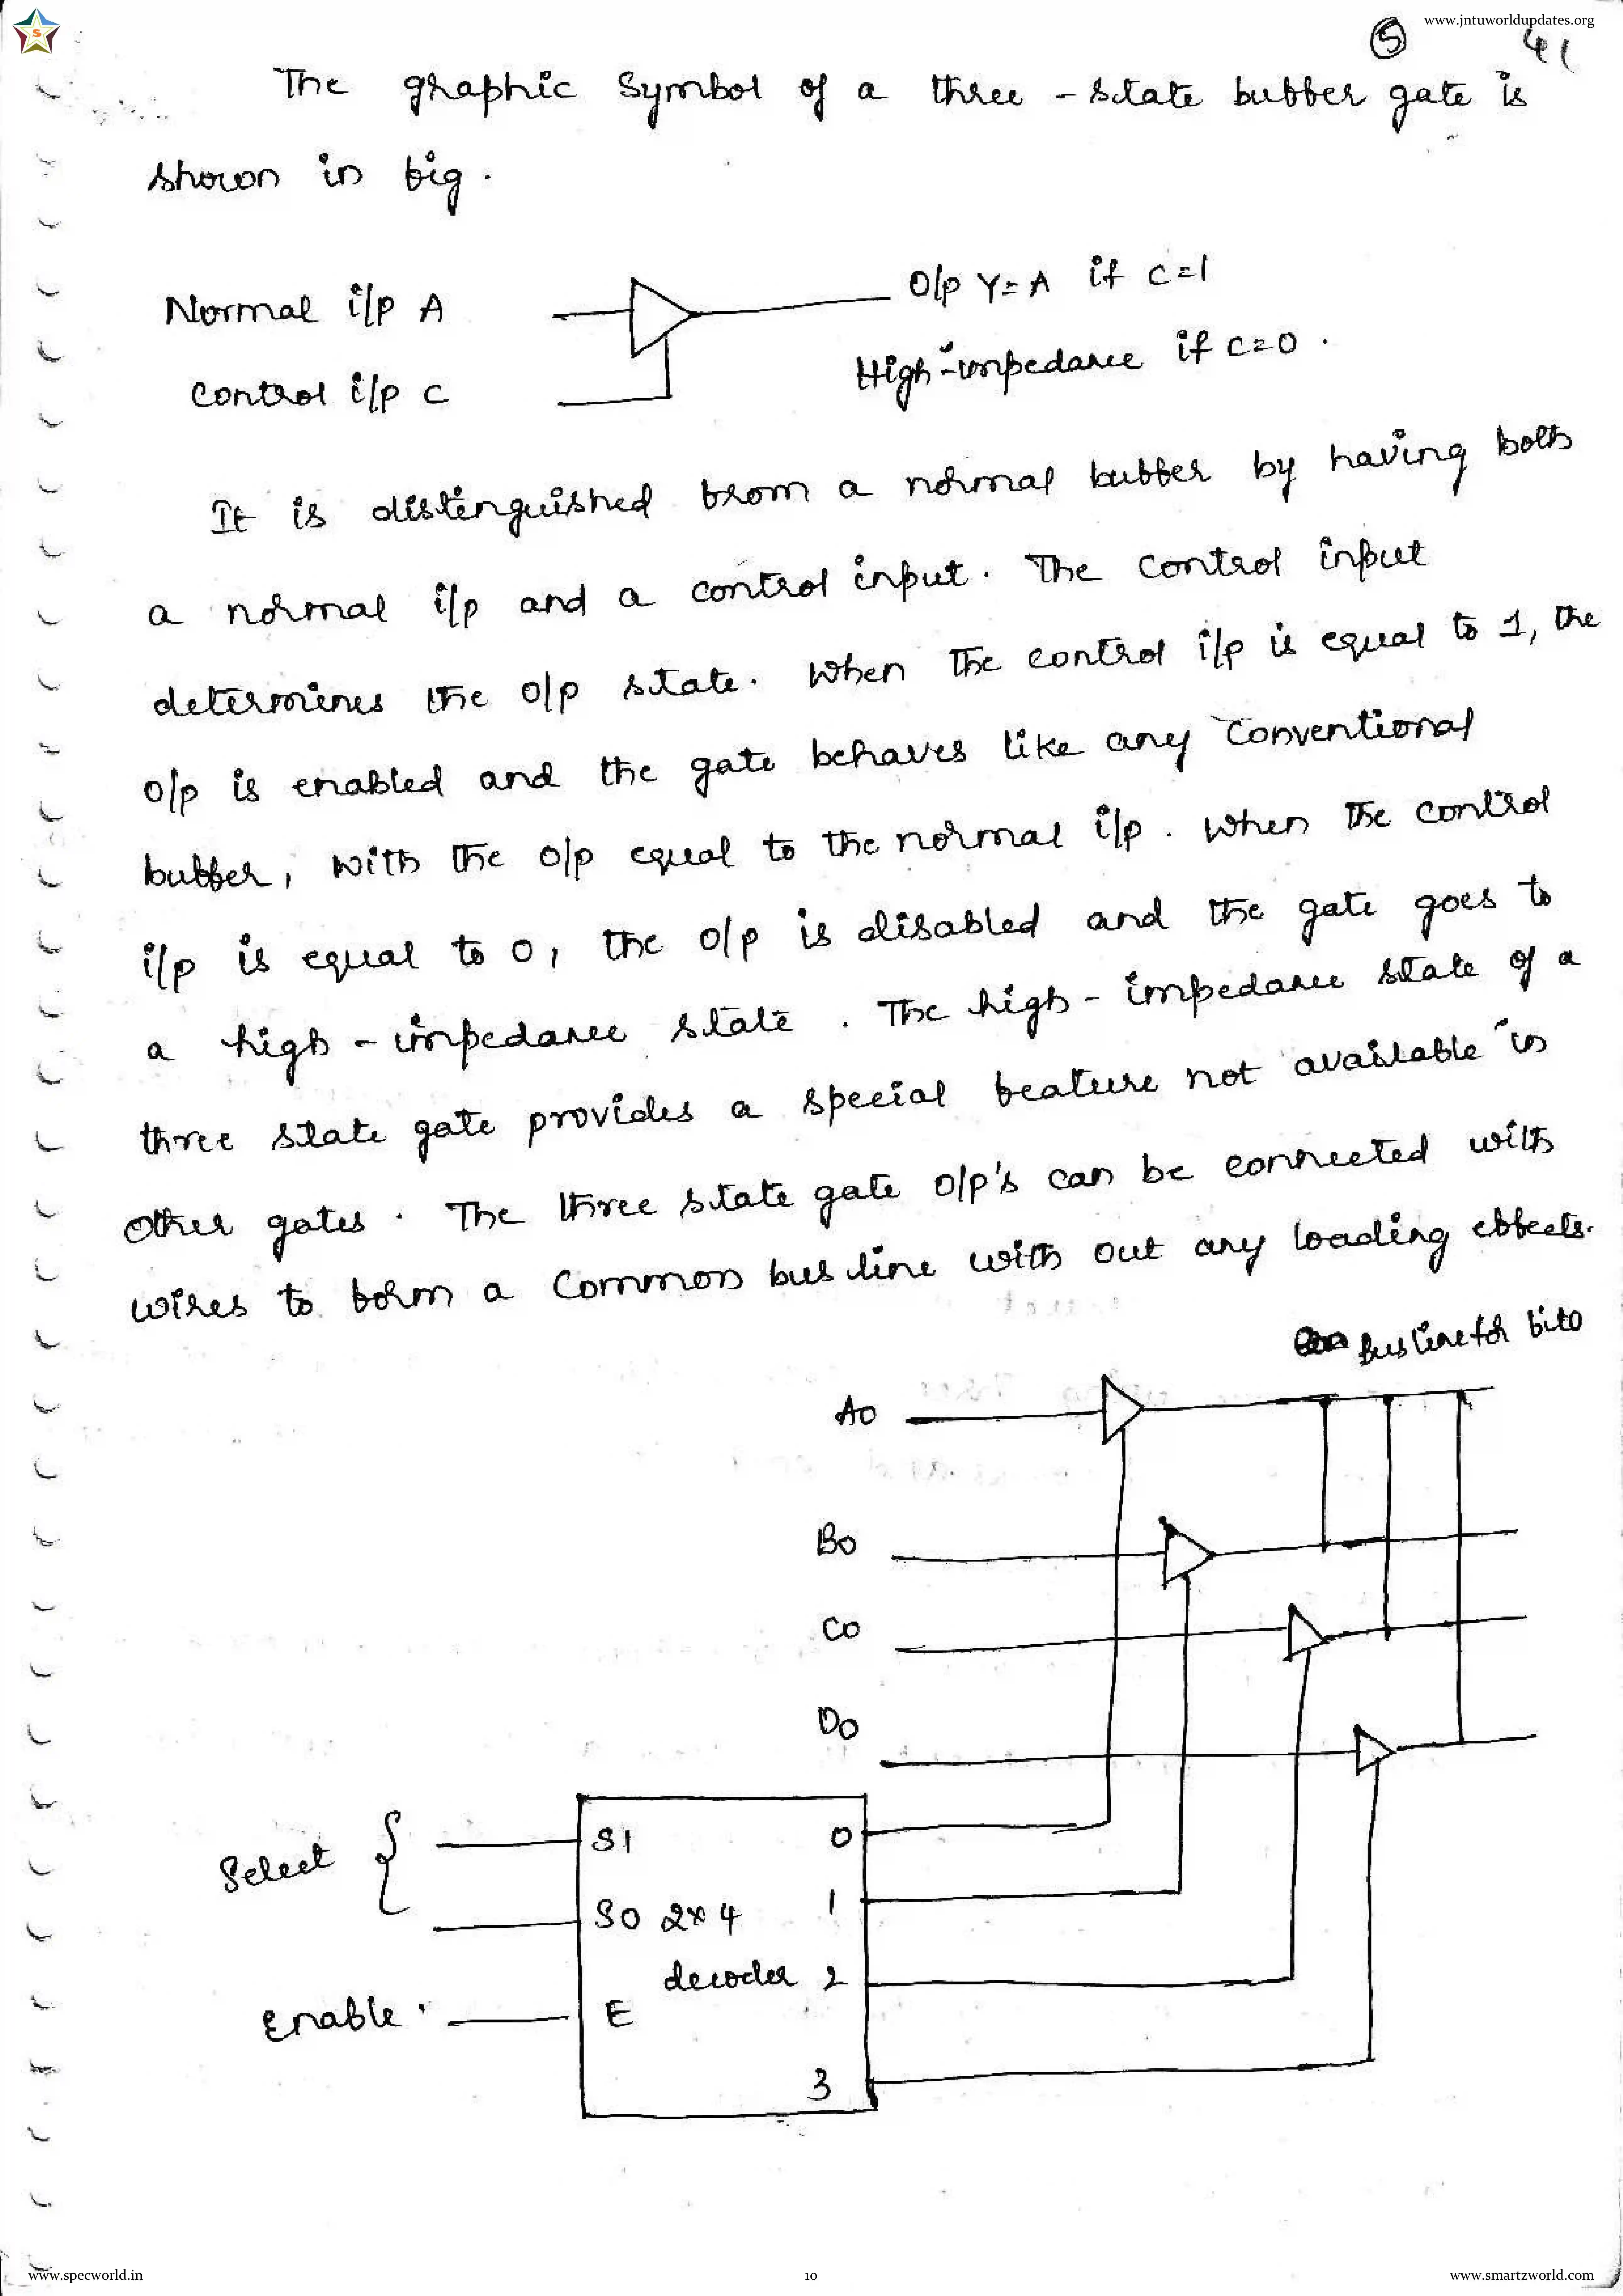 www.jntuworldupdates.org
S
5 41
The graphic Symbol of a three - state buffer gate is
shown in fig.
Normal i/p A
O/p Y=A if C=1
High-impedance if C=0.
Control i/p C
It is distinguished from a normal buffer by having both
a normal i/p and a control input. The control input
determines the o/p state. When the control i/p is equal to 1, the
o/p is enabled and the gate behaves like any conventional
buffer, with the o/p equal to the normal i/p. When the control
i/p is equal to 0, the o/p is disabled and the gate goes to
a high-impedance state. The high-impedance state of a
three state gate provides a special feature not available in
other gates. The three state gate o/p's can be connected with
wires to form a common bus line with out any loading effects.
bus line for bit0
A0
B0
C0
D0
Select
S1 0
S0 2x4 1
decoder 2
Enable E
3
www.specworld.in
10
www.smartzworld.com